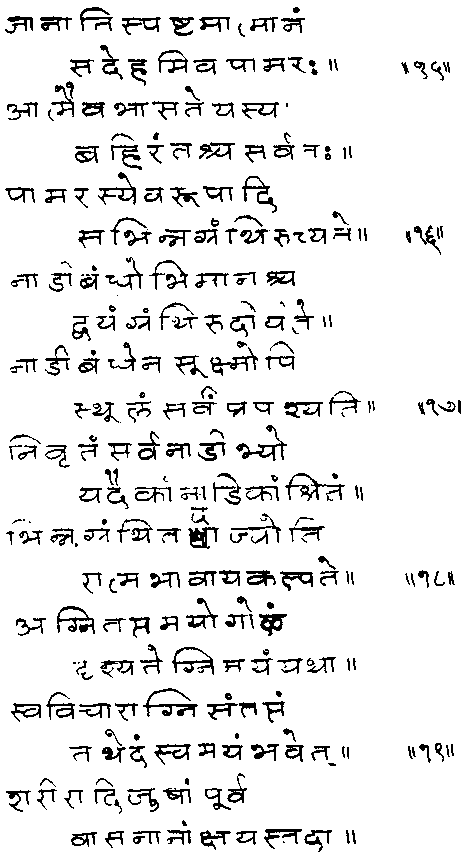 जानाति स्पष्टमात्मानं
सदेहमिव पामरः॥ ॥१५॥
आत्मैव भासते यस्य
बहिरंतश्च सर्वतः॥
पामरस्येव रूपादि
स भिन्नग्रंथिरुच्यते॥ ॥१६॥
नाडीबंधोभिमानश्च
द्वयं ग्रंथिरुदीर्यते॥
नाडीबंधेन सूक्ष्मोपि
स्थूलं सर्वं प्रपश्यति॥ ॥१७॥
निवृतं सर्वनाडीभ्यो
यदैकां नाडिकां श्रितं॥
भिन्नग्रंथि तया ज्योति
रात्मभावाय कल्पते॥ ॥१८॥
अग्नितप्तमयोगोलं
दृश्यतेग्निमयं यथा॥
स्वविचाराग्निसंतप्तं
तथेदं स्वमयं भवेत्॥ ॥१९॥
शरीरादिजुषां पूर्व
वासनानां क्षयस्तदा॥